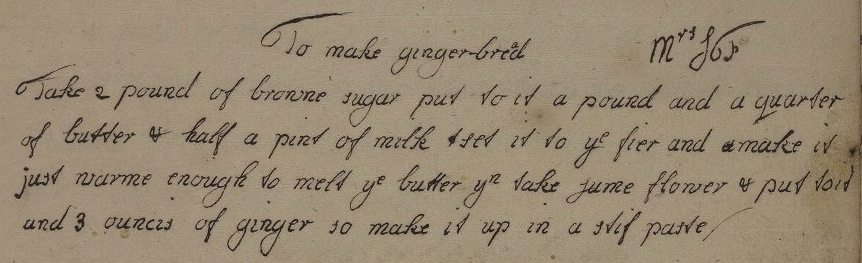 To make ginger-bread Mrs
Take 2 pound of browne sugar put to it a pound and a quarter
of butter & half a pint of milk & set it to ye fier and make it
just warme enough to melt ye butter yn take sume flower & put to it
and 3 ouncis of ginger so make it up in a stif paste